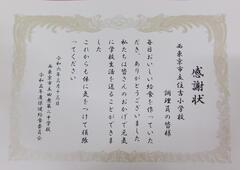 感謝状
西東京市立住吉小学校
調理員の皆様
毎日おいしい給食を作っていた
だき、ありがとうございました。
私たちは皆さんのおかげで元気
に学校生活を送ることができま
した。
これからも体に気をつけて頑張
ってください。
令和六年三月十三日
西東京市立田無第二中学校
令和五年度保健給食委員会